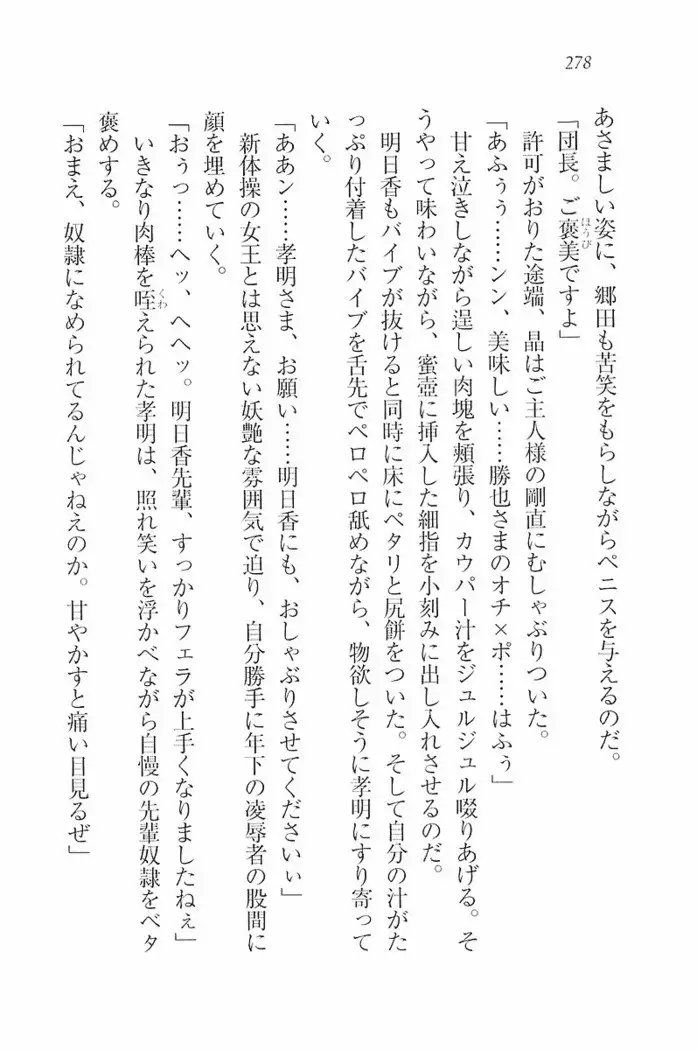 278
あさましい姿に、郷田も苦笑をもらしながらペニスを与えるのだ。
「団長。ご褒美ですよ」
許可がおりた途端、晶はご主人様の剛直にむしゃぶりついた。
「あふぅぅ……ンン、美味しい……勝也さまのオチ×ポ……はふぅ」
甘え泣きしながら逞しい肉塊を頬張り、カウパー汁をジュルジュル啜りあげる。そ
うやって味わいながら、蜜壺に挿入した細指を小刻みに出し入れさせるのだ。
明日香もバイブが抜けると同時に床にペタリと尻餅をついた。そして自分の汁がた
っぷり付着したバイブを舌先でペロペロ舐めながら、物欲しそうに孝明にすり寄って
いく。
「ああン……孝明さま、お願い……明日香にも、おしゃぶりさせてくださいぃ」
新体操の女王とは思えない妖艶な雰囲気で迫り、自分勝手に年下の凌辱者の股間に
顔を埋めていく。
「おぅっ……ヘッ、ヘヘッ。明日香先輩、すっかりフェラが上手くなりましたねぇ」
いきなり肉棒を咥えられた孝明は、照れ笑いを浮かべながら自慢の先輩奴隷をベタ
褒めする。
「おまえ、奴隷になめられてるんじゃねえのか。甘やかすと痛い目見るぜ」